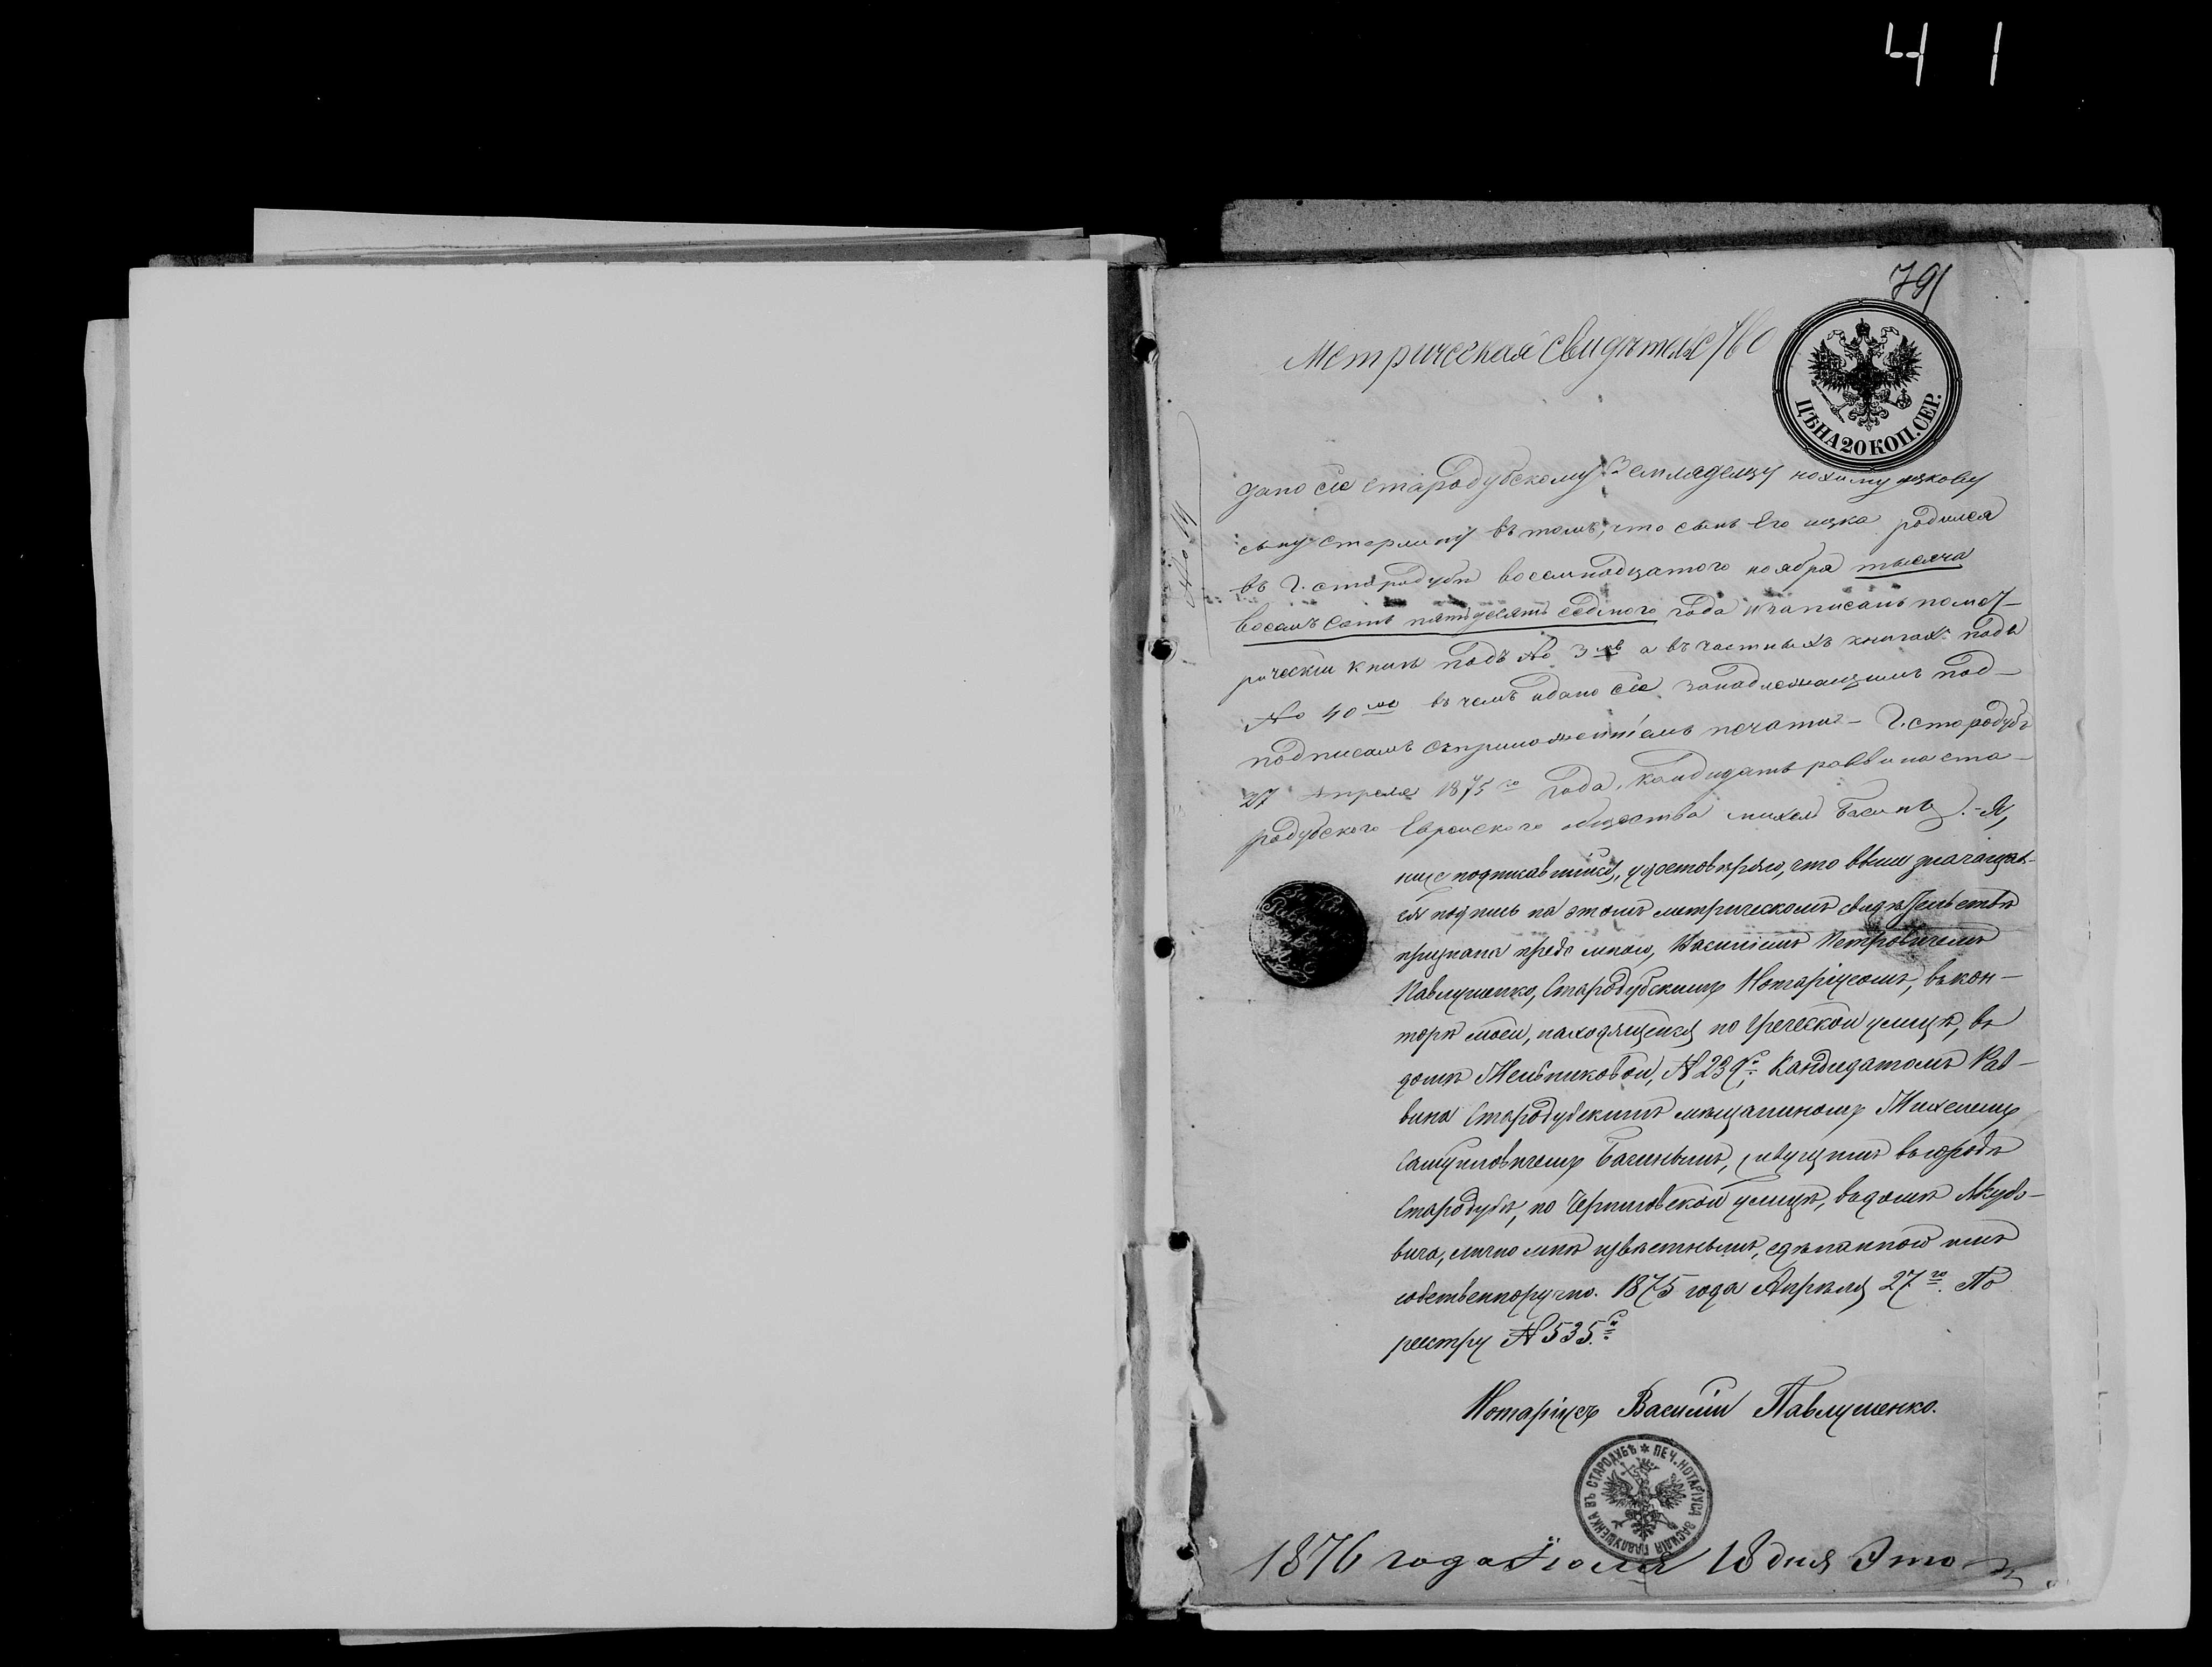 41
791
Метрическая Свидѣтельство
ЦѢНА 20 КОП. СЕР.
дано сіе Стародубскому Земляделцу нохиму ицкову
сыну Стерлину въ томъ, что сынъ Его ицка родился
въ Г. стародубѣ восемнадцатого ноября тысяча
восемъ сотъ пятьдесятъ седмого года и записанъ по мет-
рической книгѣ подъ № 3мъ а въ частныхъ книгахъ подъ
№ 40мъ въ чемъ и дано сіе за надлежащимъ под-
подписомъ съ приложеніемъ печати - Г. стародубъ
27 Апреля 1875го Года. Кандидатъ раввина ста-
родубского Еврейского общества михель Басинъ. - Я,
ниже подписавшійся, удостовѣряю, что выше значащая-
ся подпись на этомъ метрическомъ свидѣтельствѣ
признана предъ мною, Василіемъ Петровичемъ
Павлушенко, Стародубскимъ Нотаріусомъ, въ кон-
торѣ моей, находящейся по Греческой улицѣ, въ
домѣ Мельниковой, № 239, Кандидатомъ Рав-
вина Стародубскимъ мѣщаниномъ Михелемъ
Самуиловичемъ Басинымъ, живущимъ въ городѣ
Стародубѣ, по Черниговской улицѣ, въ домѣ Якубо-
вича, лично мнѣ извѣстнымъ, сдѣланною имъ
собственноручно. 1875 года Апрѣля 27го. По
реестру № 535.
Нотаріусъ Василій Павлушенко.
ПЕЧ. НОТАРІУСА ВАСИЛІЯ ПАВЛУШЕНКА ВЪ СТАРОДУБѢ
1876 года Іюля 18 дня Это